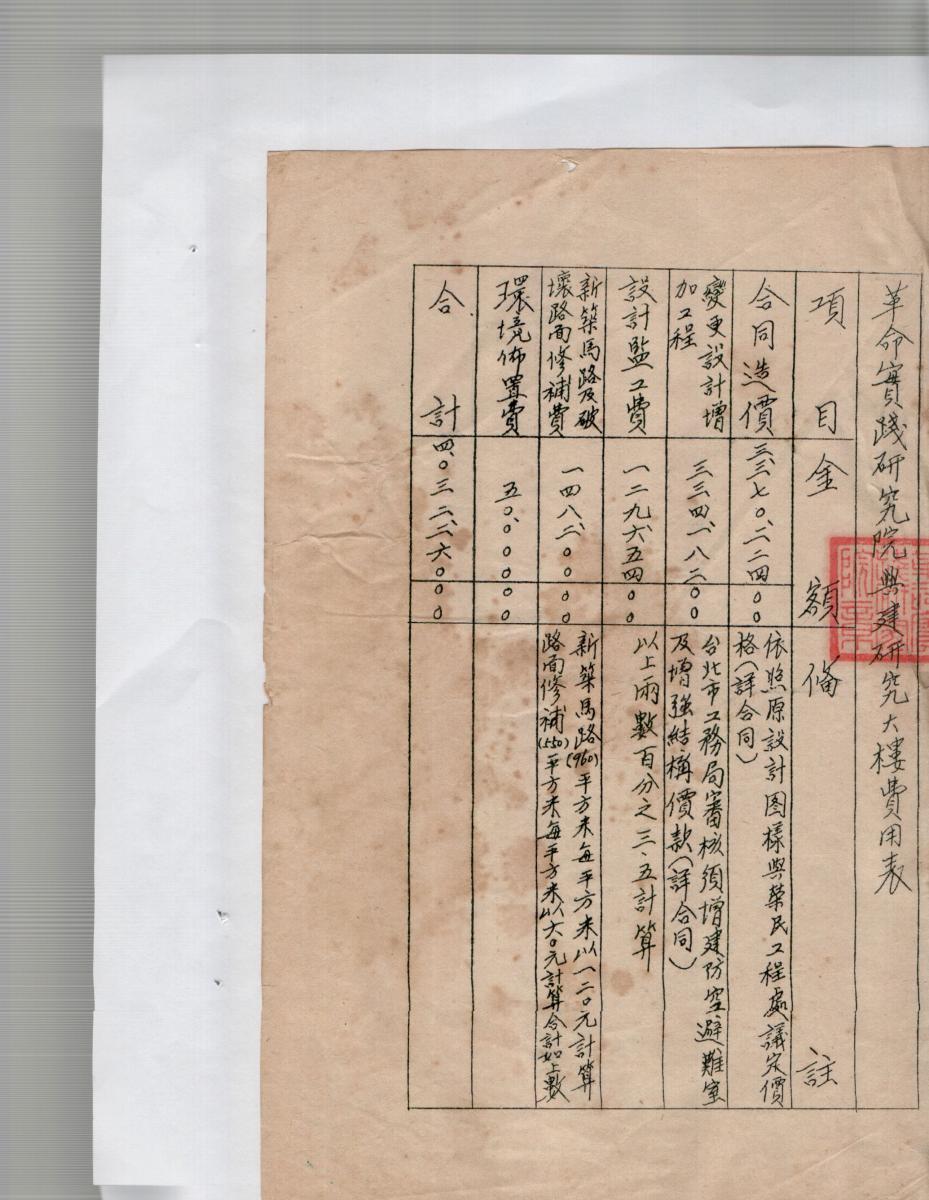 革命實踐研究院興建研究大樓費用表
項目金額備註
合同造價
三、三七〇、二二四〇〇
依照原設計图樣與榮民工程處議定價
格(詳合同)
變更設計增
加工程
三三四、一八二〇〇
台北市工務局審核須增建防空避難室
及增強結構價款(詳合同)
設計監工費
一二九、六五四〇〇
以上兩數百分之三·五計算
新築馬路及破
壞路面修補費
一四八、二〇〇〇〇
新築馬路(960)平方米每平方米以一二〇元計算
路面修補(550)平方米每平方米以六〇元計算合計如上數
環境佈置費
五〇、〇〇〇〇〇
合計
四、〇三二、二六〇〇〇